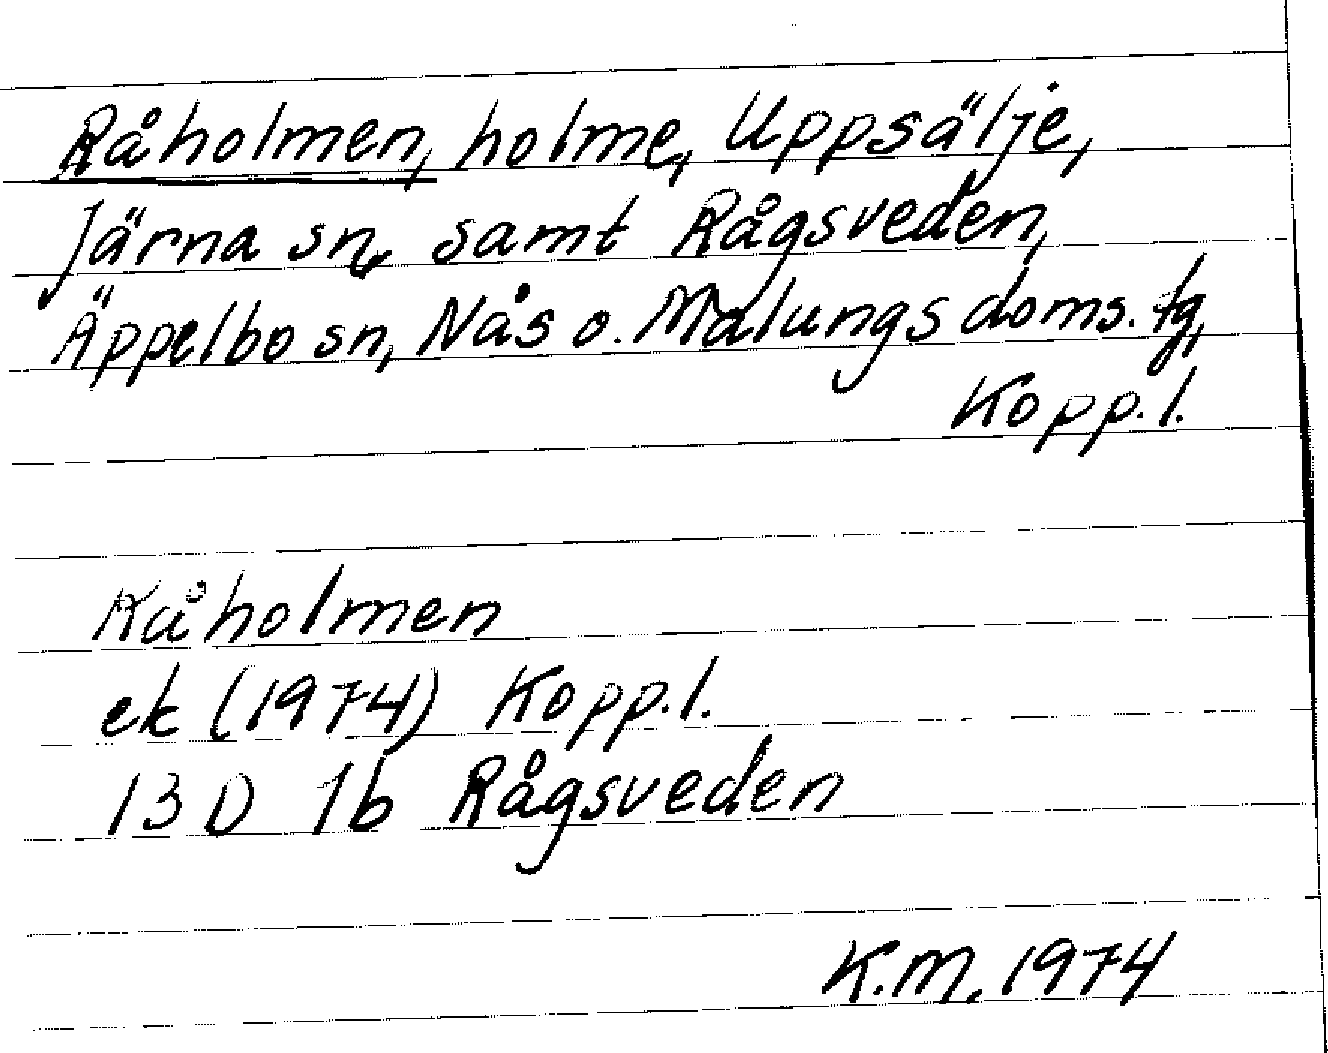 Råholmen, holme, Uppsälje,
Järna sn, samt Rågsveden,
Äppelbo sn, Nås o. Malungs doms. tg,
Kopp. l.
Råholmen
ek (1974) Kopp. l.
13 D 1b Rågsveden
K.M. 1974